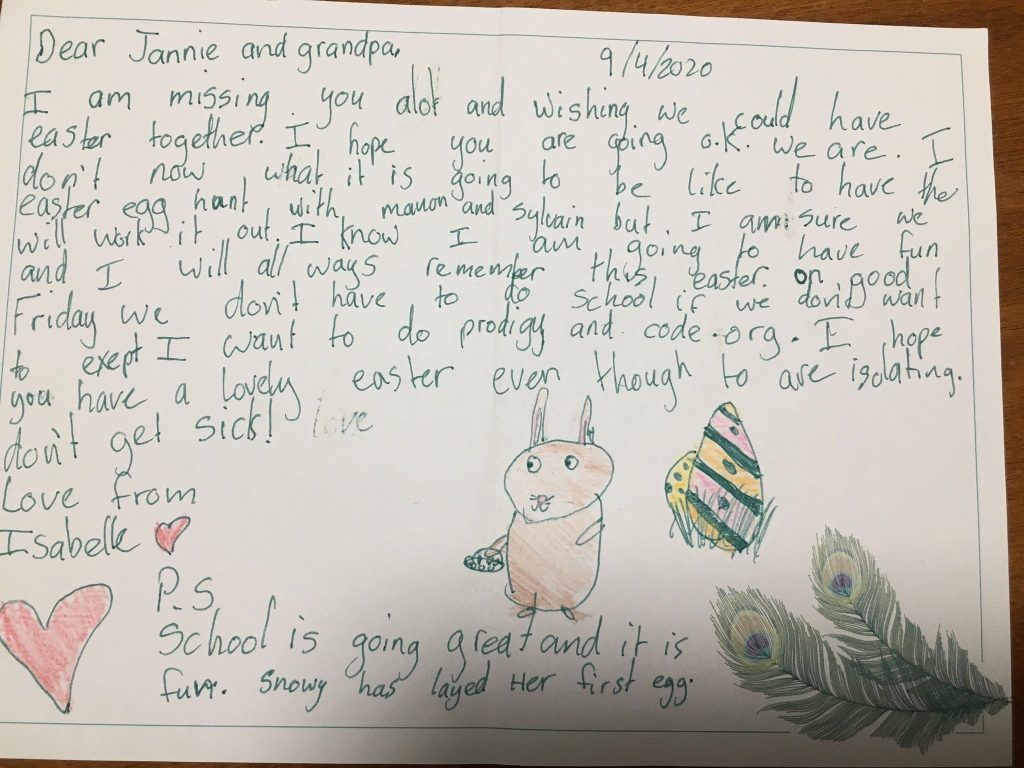 Dear Jannie and grandpa,
9/4/2020
I am missing you alot and wishing we could have
easter together. I hope you are going o.k. we are. I
don't now what it is going to be like to have the
easter egg hunt with manon and sylvain but I am sure we
will work it out. I know I am going to have fun
and I will all ways remember this easter. on good
Friday we don't have to do school if we don't want
to exept I want to do prodigy and code.org. I hope
you have a lovely easter even though to are isolating.
don't get sick! love
Love from
Isabelle
P.S
School is going great and it is
fun. Snowy has layed Her first egg.